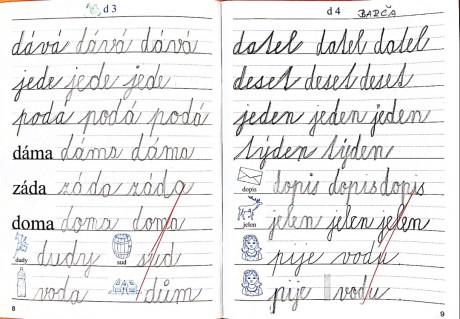 d 3
dává dává dává
jede jede jede
podá podá podá
dáma dáma dáma
záda záda záda
doma doma doma
dudy dudy sud sud
voda dům
8
d 4 BARČA
datel datel datel
deset deset deset
jeden jeden jeden
týden týden
dopis dopis dopis dopis
jelen jelen jelen jelen
pije vodu
pije vodu
9